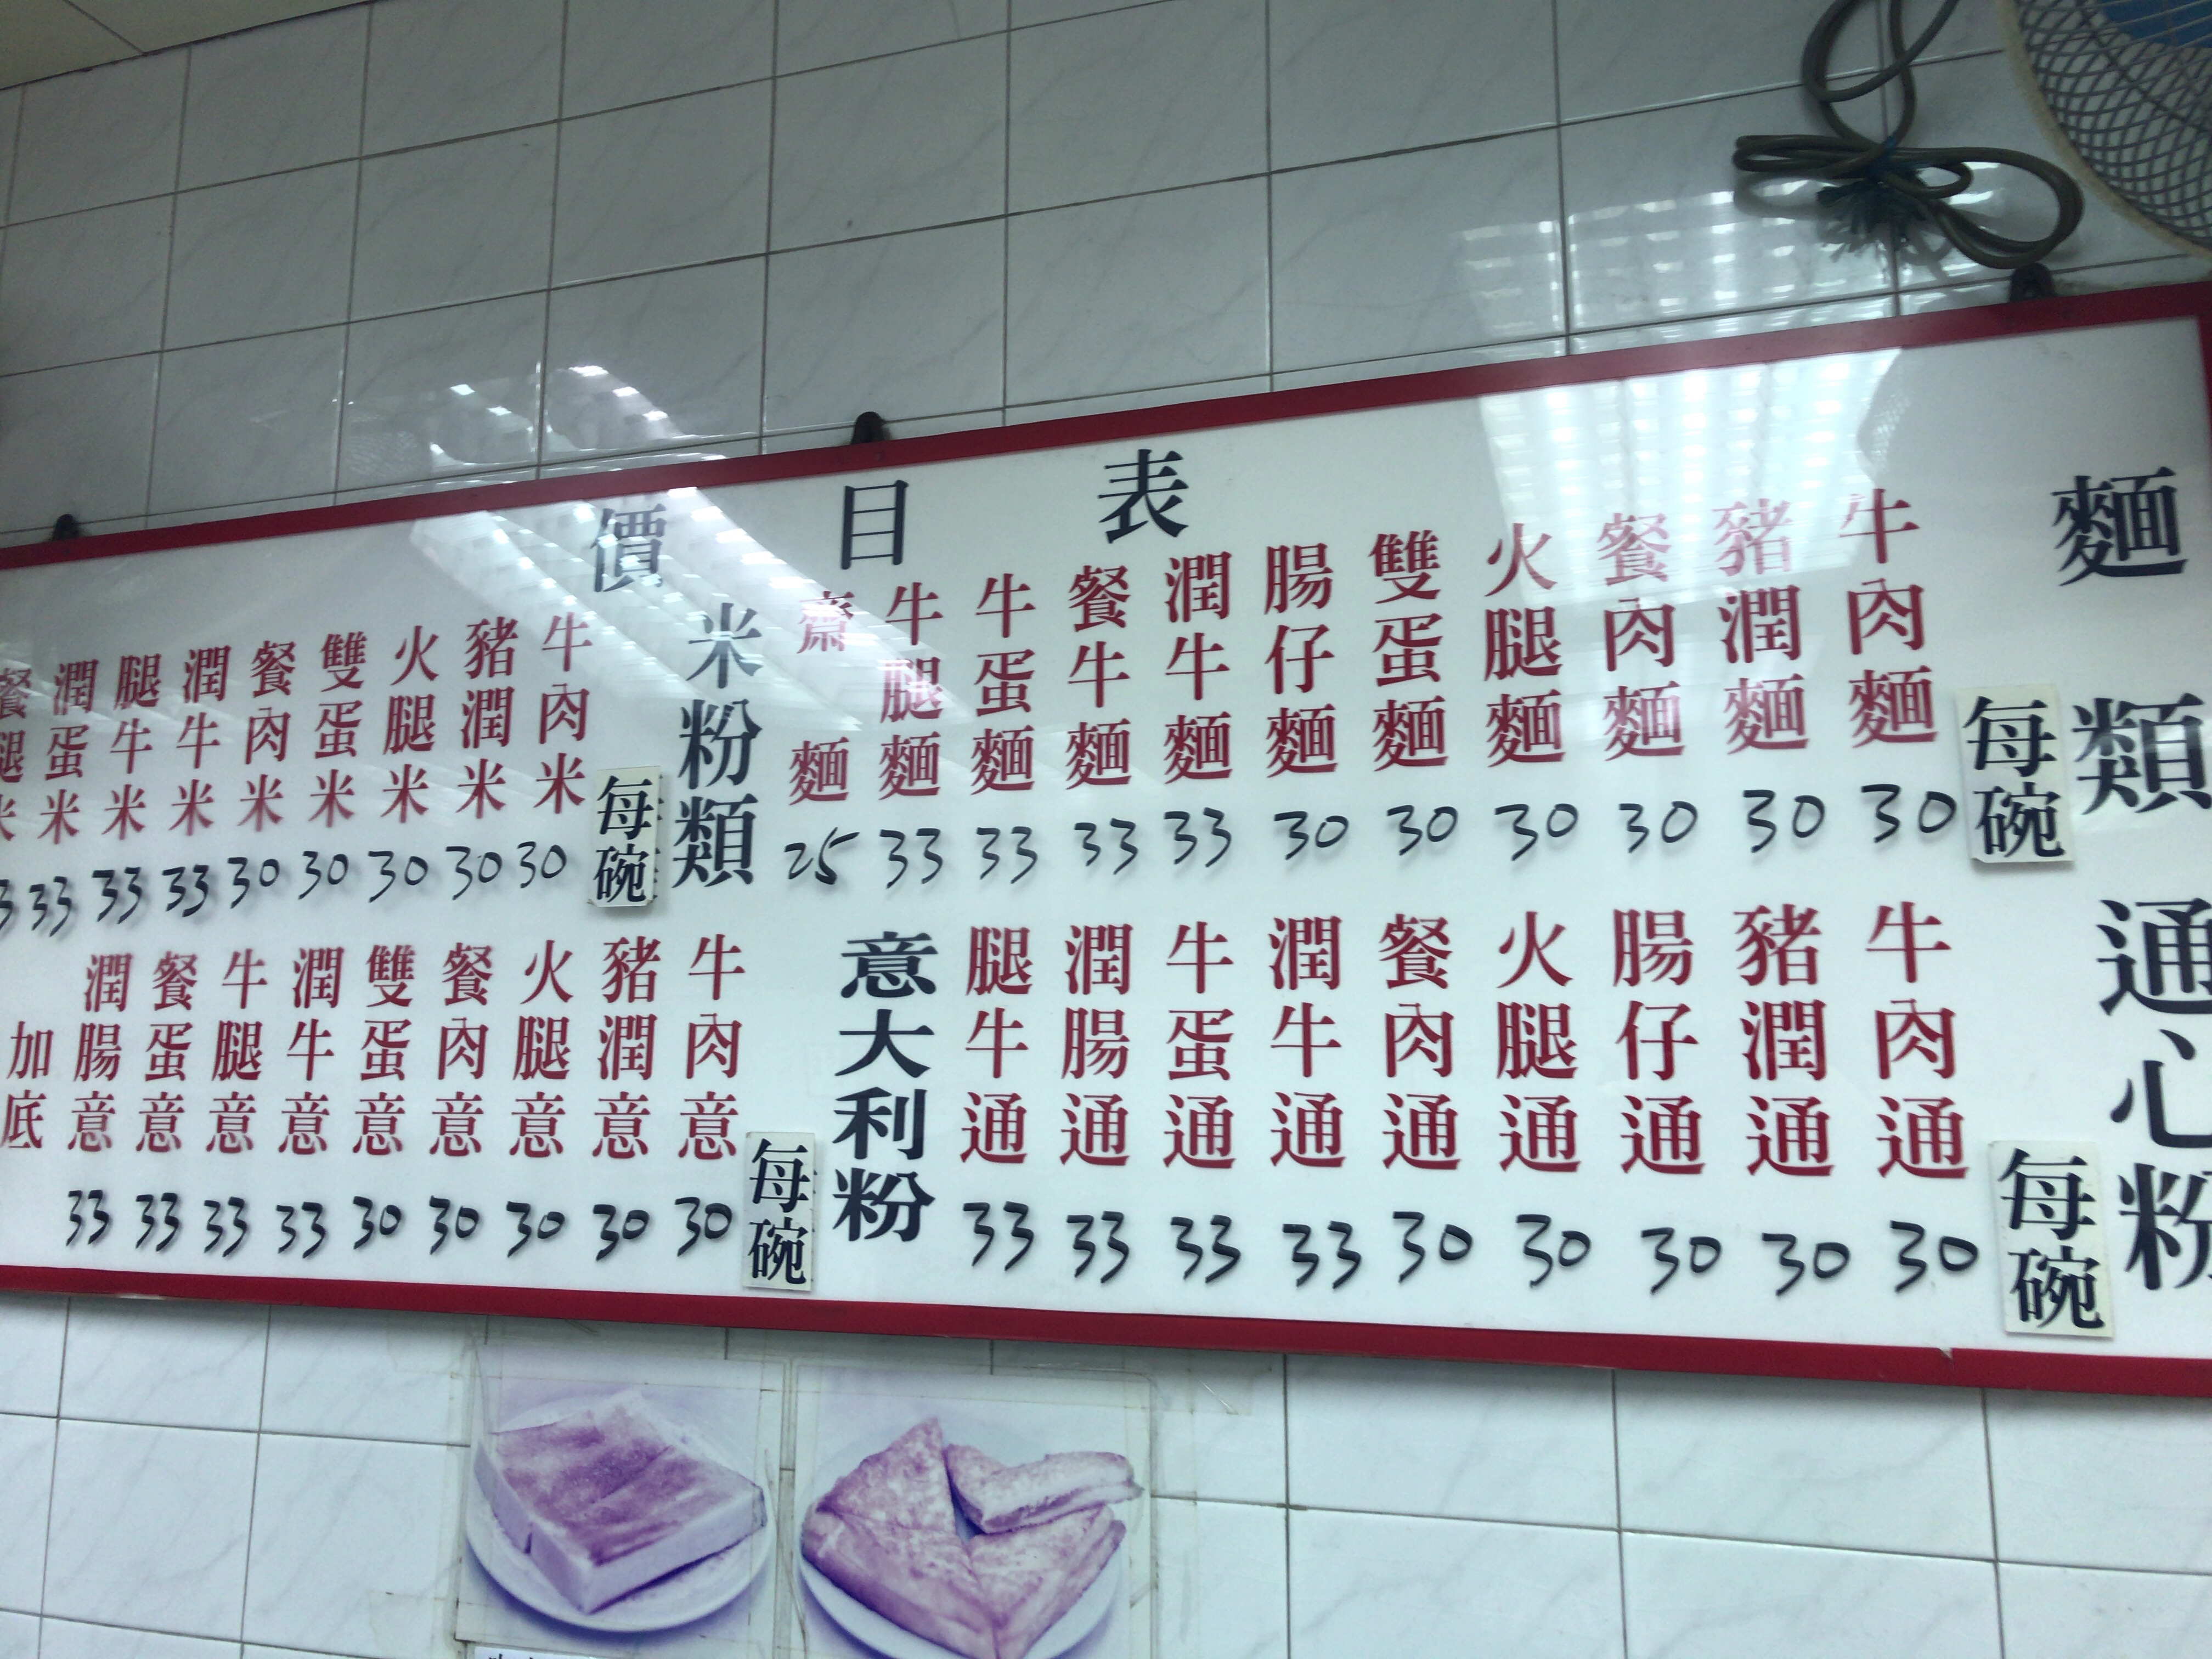 價目表
麵類
每碗
牛肉麵 30
豬潤麵 30
餐肉麵 30
火腿麵 30
雙蛋麵 30
腸仔麵 30
潤牛麵 33
餐牛麵 33
牛蛋麵 33
牛腿麵 33
齋麵 25
米粉類
每碗
牛肉米 30
豬潤米 30
火腿米 30
雙蛋米 30
餐肉米 30
潤牛米 33
腿牛米 33
潤蛋米 33
餐腿米
通心粉
每碗
牛肉通 30
豬潤通 30
腸仔通 30
火腿通 30
餐肉通 30
潤牛通 33
牛蛋通 33
潤腸通 33
腿牛通 33
意大利粉
每碗
牛肉意 30
豬潤意 30
火腿意 30
餐肉意 30
雙蛋意 30
潤牛意 33
牛腿意 33
餐蛋意 33
潤腸意 33
加底